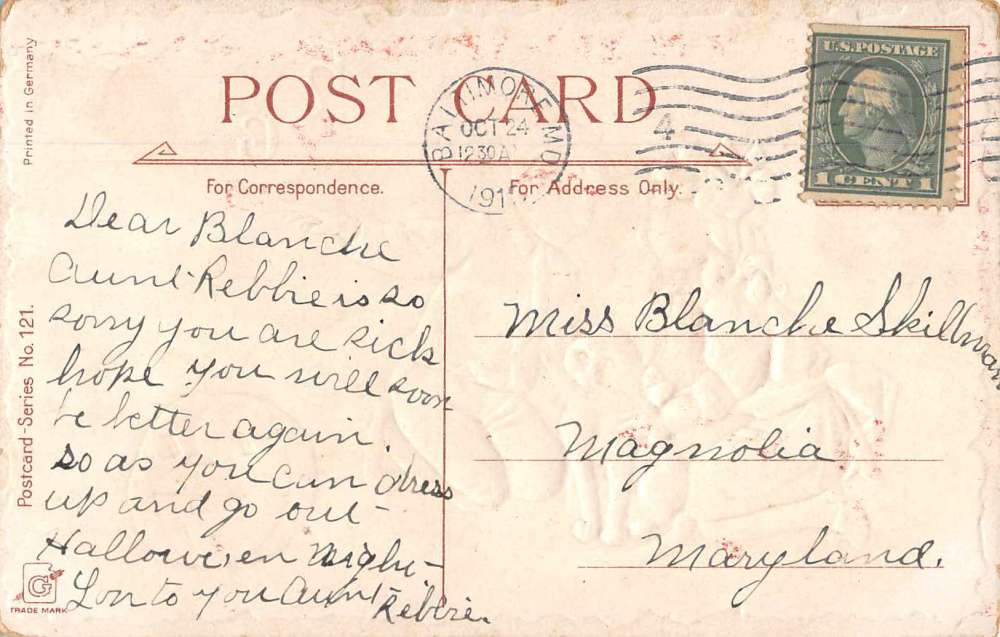 Printed in Germany
POST CARD
U.S. POSTAGE
1 CENT 1
BALTIMORE MD
OCT 24
1230A
191
4
For Correspondence.
For Address Only.
Postcard-Series No. 121.
Dear Blanche
Aunt Rebbie is so
sorry you are sick
hope you will soon
be better again.
so as you can dress
up and go out
Hallowe,en night
to you Aunt
Rebbie.
Miss Blanche Skillman
Magnolia
Maryland.
G
TRADE MARK